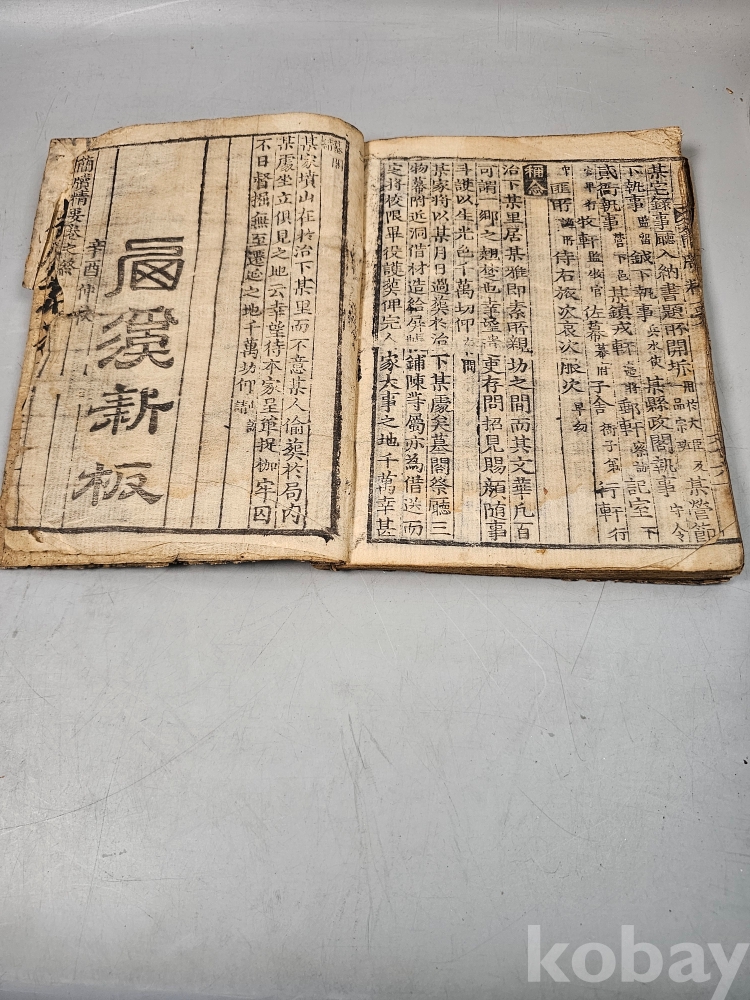 某宅錄事廳入納書題所開坼 用於大臣及 一品宗班 某營節
下執事 監留 鉞下執事 兵水使 某縣政閣執事 守令
貳衙執事 某鎮戎軒 郵軒 察訪 記室下
官平行 牧軒 監牧官 佐幕 幕裨 子舍 衙子弟 行軒 行
中 匪所 謫所 待右旅次哀次服次
稱念
治下某里居某雅即素所親切之間而其文華凡百
可謂一鄉之翹楚也幸望淸吏存問招見賜顏隨事
斗護以生光色千萬切仰
某家將以某月日過葬於治下某處矣墓閣祭廳三
物幕附近洞借材造給屏帳鋪陳等屬亦為借送而
定將校限畢役護葬俾完人家大事之地千萬幸甚
某家墳山在於治下某里而不意某人偷葬於局內
某處坐立俱見之地云幸望待本家呈單捉枷牢囚
不日督掘無至遷延之地千萬切仰
新板
簡牘精要
辛酉仲秋
kobay